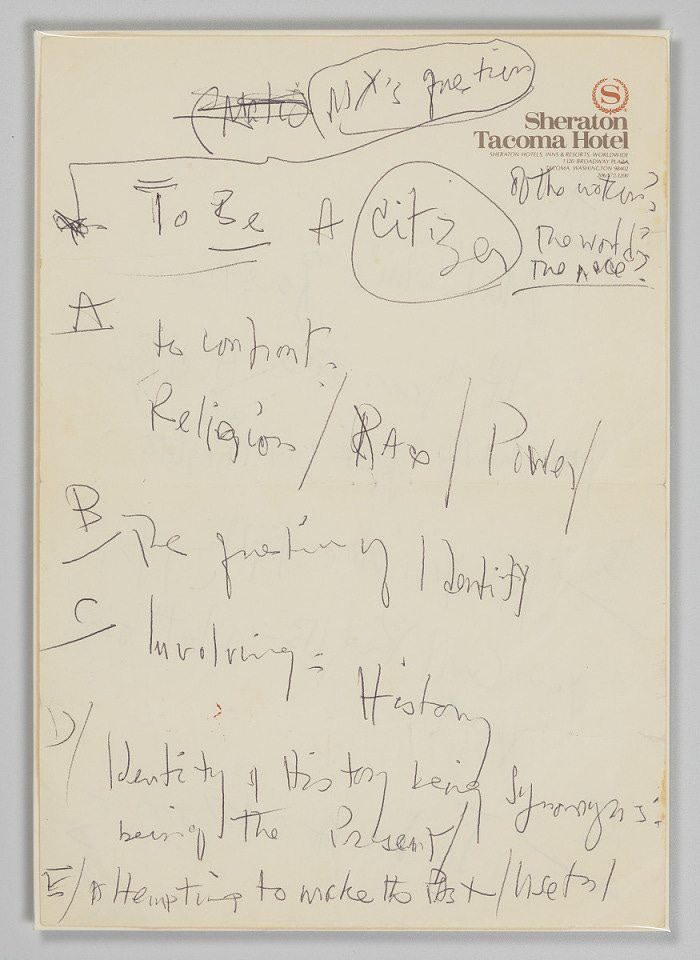 MX's question
S
Sheraton
Tacoma Hotel
SHERATON HOTELS, INNS & RESORTS, WORLDWIDE
1320 BROADWAY PLAZA
TACOMA, WASHINGTON 98402
To Be A citizen
Of the nation?
The world?
The race?
A
to confront:
Religion / Race / Power /
B The question of Identity
C Involving:
History
D/ Identity & History being Synonyms:
being The Present /
E/ Attempting to make the Past / Useful